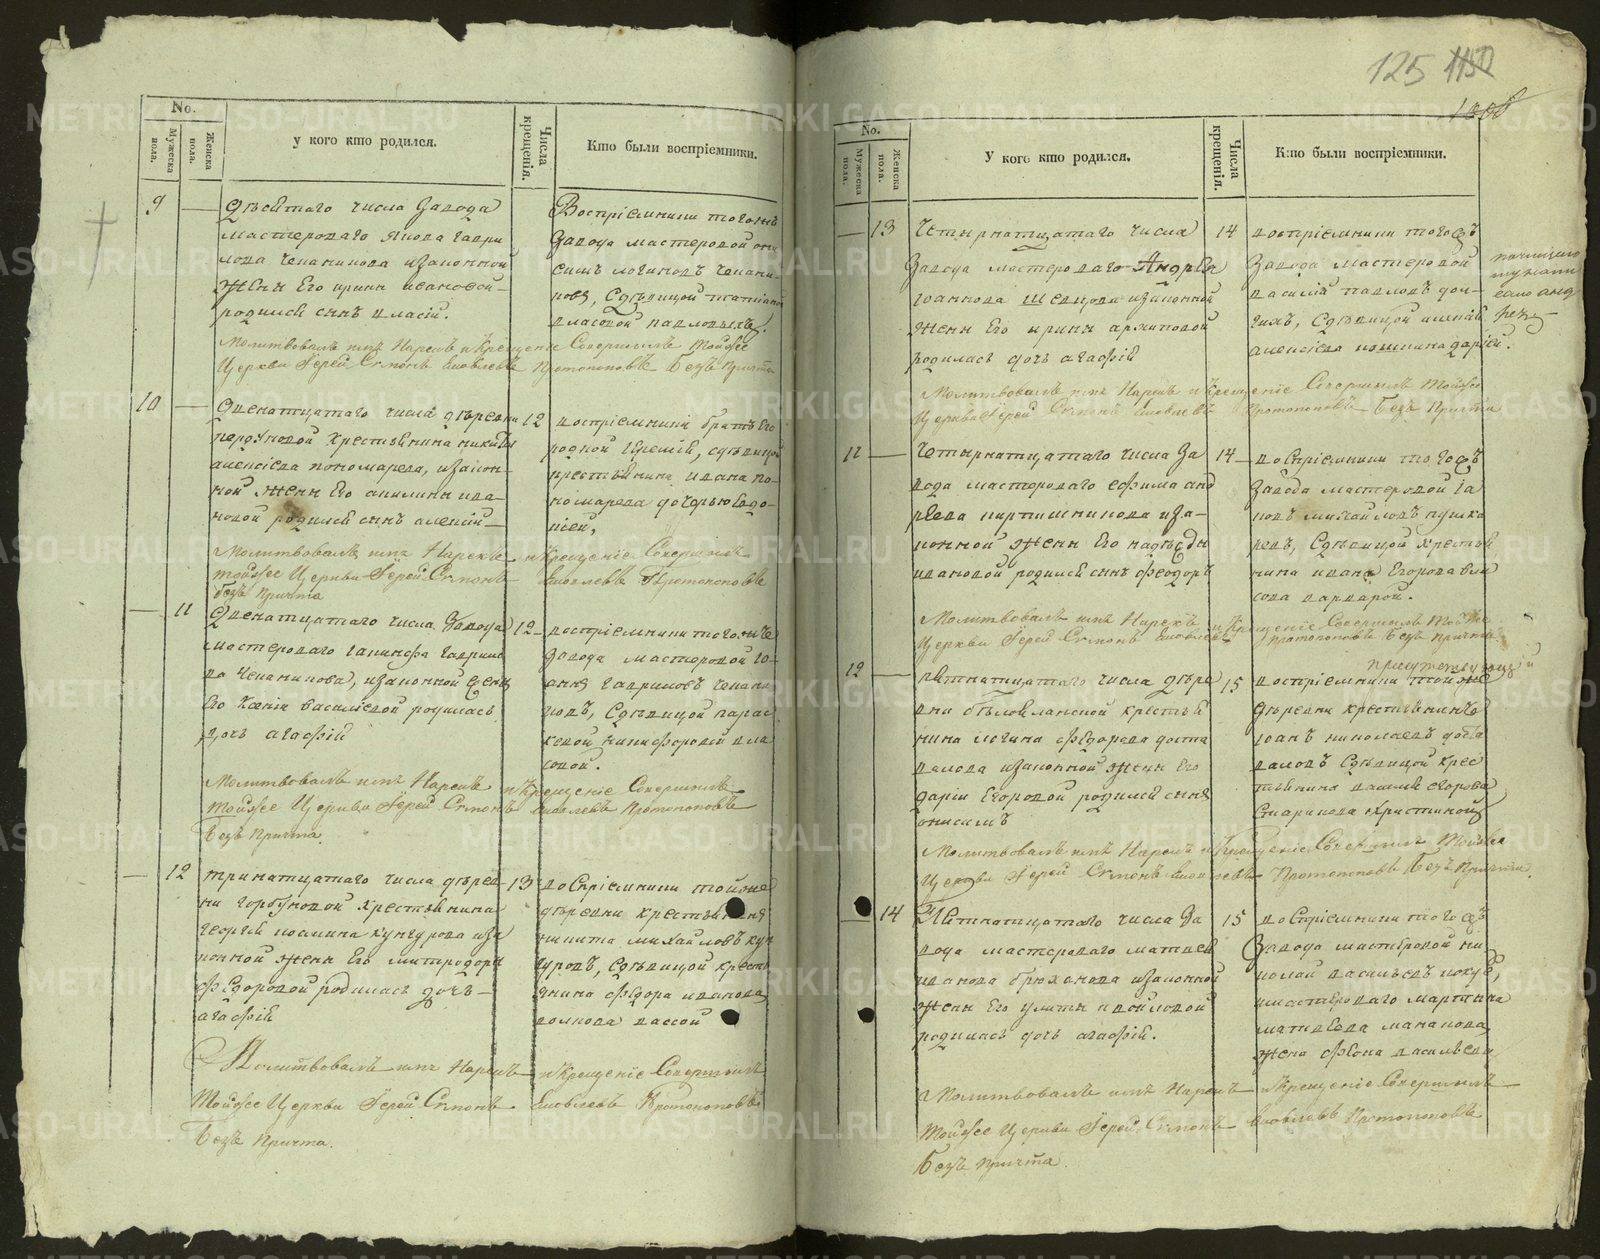 125 1150
1008
No.
Мужеска пола.
Женска пола.
У кого кто родился.
Числа крещенія.
Кто были воспріемники.
9 —
Девѣтаго числа Завода
мастероваго Якова Гаври
лова Чеканникова изаконной
жены Его ирины ивановой
родился сынъ власій.
Воспріемники тогожъ
Завода мастеровой они
симъ логиновъ Чекани
ковъ, Сдѣвицой татіаной
власовой павловыхъ.
Молитвовалъ имя Нарекъ и Крещеніе Совершилъ Тойже
Церкви Іерей Симонъ Яковлевъ Протопоповъ Безъ Причта
10 —
Двенатцатаго числа деревни
Крестьянина никиты
алексіева пономарева, изакон-
ной жены Его акилины ива-
новой родился сынъ алексій—
12
воспріемники братъ Его
родной Еремій, сдѣвицой
крестьянина ивана по-
номарева дочерью Евдо-
кіей,
Молитвовалъ имя Нарекъ и Крещеніе Совершилъ
тойже Церкви Іерей Симонъ Яковлевъ Протопоповъ
безъ Причта
— 11
Двенатцатаго числа Завода
мастероваго іакинфа гаврило
ва Чеканникова, изаконной жены
Его Ксеніи василіевой родилась
дочь агафія
12
воспріемники тогожъ
Завода мастеровой іо-
анъ гавриловъ Чекани
ковъ, Сдѣвицой парас
кевой никифоровой вла
совой.
Молитвовалъ имя Нарекъ и Крещеніе Совершилъ
тойже Церкви Іерей Симонъ Яковлевъ Протопоповъ
Безъ Причта.
— 12
тринатцатаго числа дерев
ни горбуновой Крестьянина
георгія космина кунгурова иза
конной жены Его митродоры
федоровой родилась дочь—
агафія
13
воспріемники тойже
деревни крестьянинъ
никита михайловъ кун
гуровъ, Сдѣвицой кресть
янина федора иванова
волкова вассой
Молитвовалъ имя Нарекъ и Крещеніе Совершилъ
Тойже Церкви Іерей Симонъ Яковлевъ Протопоповъ
Безъ Причта.
No.
Мужеска пола.
Женска пола.
У кого кто родился.
Числа крещенія.
Кто были воспріемники.
— 13
Четырнатцатаго числа
Завода мастероваго Андрея
іоаннова Шевцова изаконной
жены Его ирины архиповой
родилась дочь агафія
14
воспріемники тогожъ
Завода мастеровой
василій павловъ
Сдѣвицой
алексіева кошкина дарьей.
Молитвовалъ имя Нарекъ и Крещеніе Совершилъ Тойже
Церкви Іерей Симонъ Яковлевъ Протопоповъ Безъ Причта
11 —
Четырнатцатаго числа За
вода мастероваго ефима анд
реева изза-
конной жены Его надежды
ивановой родился сынъ феодоръ
14
воспріемники тогожъ
Завода мастеровой іа
ковъ михайловъ пушка
ревъ, Сдѣвицой Крестья
нина ивана Егорова вла
сова варварой.
Молитвовалъ имя Нарекъ и Крещеніе Совершилъ Тойже
Церкви Іерей Симонъ Яковлевъ Протопоповъ Безъ Причта
12 —
Пятнатцатаго числа дере
вни крестья
нина логина федорева доста
валова изаконной жены Его
даріи Егоровой родился сынъ
онисимъ
15
воспріемники тойже
деревни крестьянинъ
іоанъ николаевъ доста
валовъ Сдѣвицой крес
тьянина Егорова
Старикова христиной
Молитвовалъ имя Нарекъ и Крещеніе Совершилъ Тойже
Церкви Іерей Симонъ Яковлевъ Протопоповъ Безъ Причта.
— 14
Пятнатцатаго числа За
вода мастероваго матвея
иванова брюханова изаконной
жены Его улиты
родилась дочь агафія.
15
воспріемники тогожъ
Завода мастеровой ни
колай васильевъ
имастероваго мартина
матвеева маканова
жена васильева
Молитвовалъ имя Нарекъ и Крещеніе Совершилъ
Тойже Церкви Іерей Симонъ Яковлевъ Протопоповъ
Безъ Причта.
METRIKI.GASO-URAL.RU